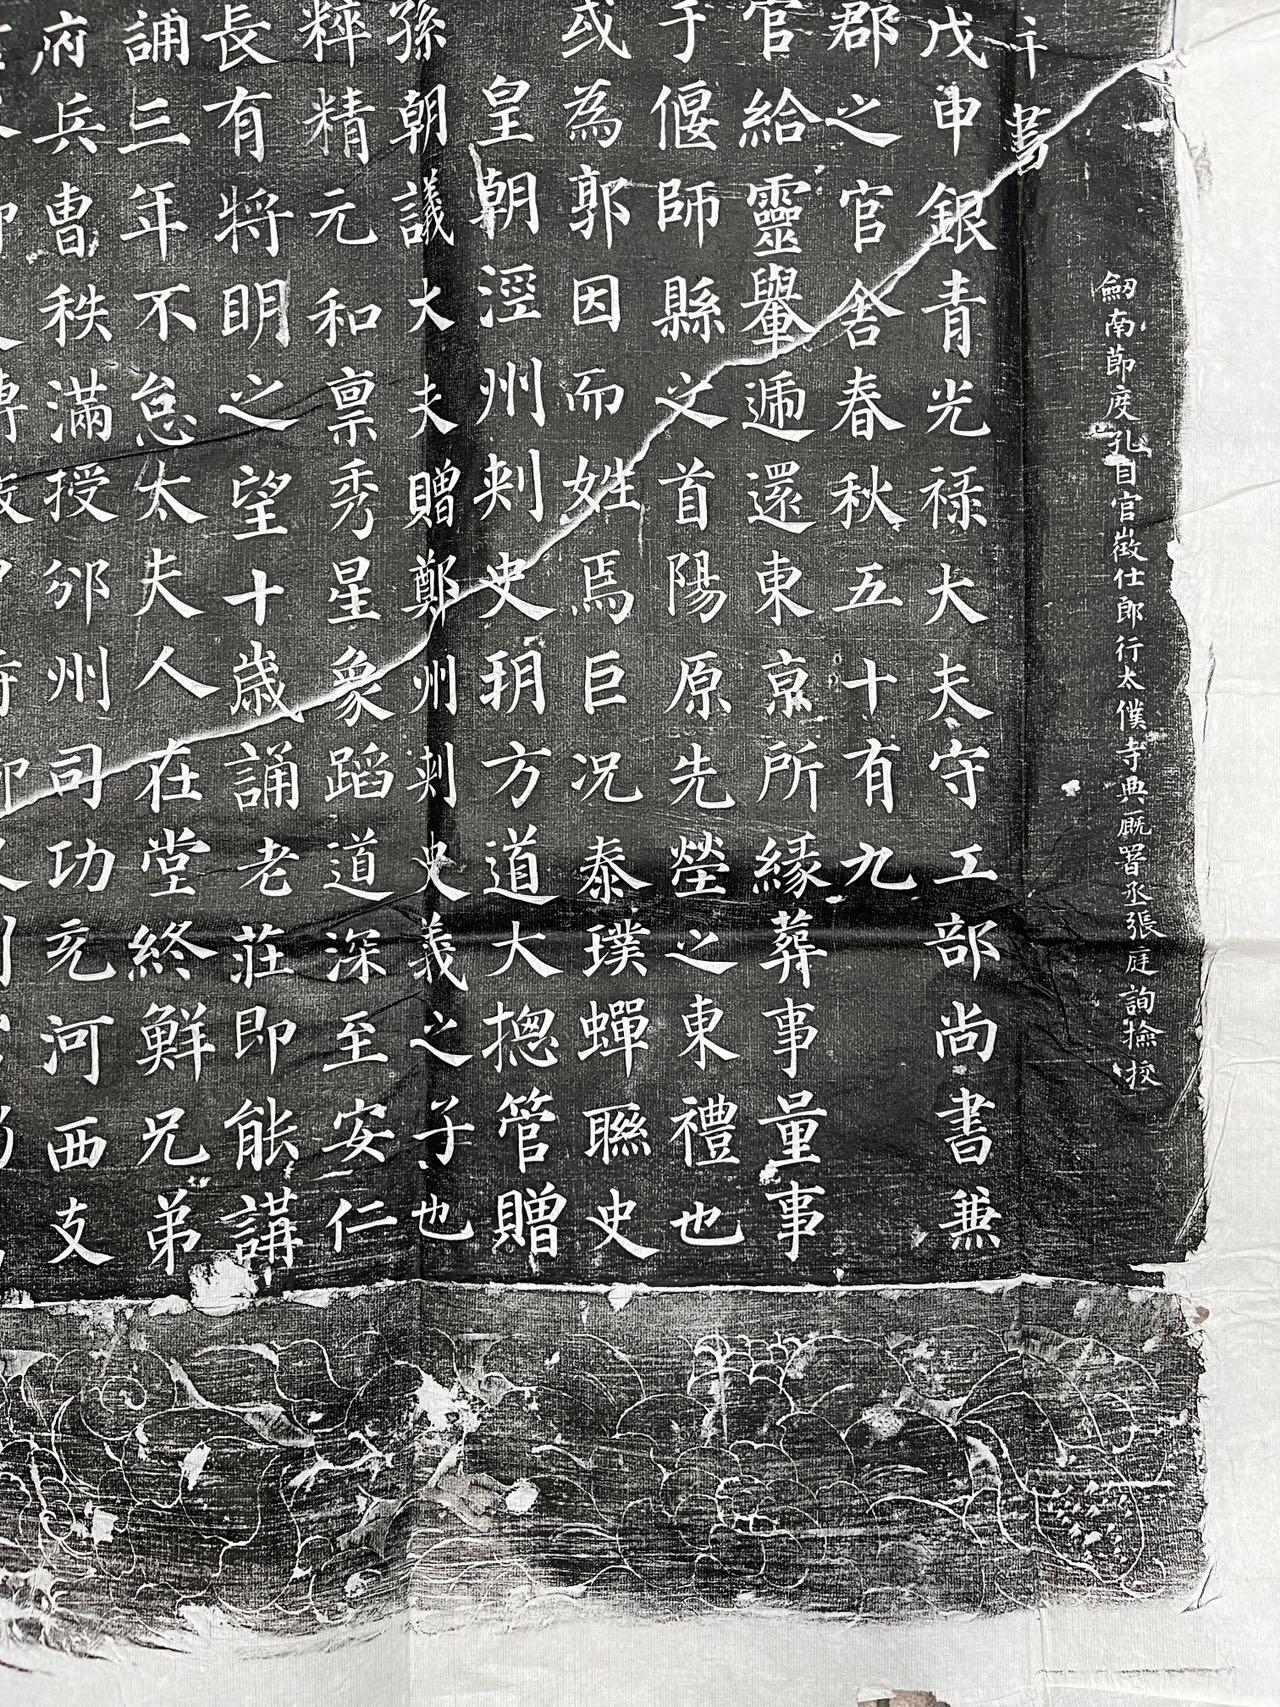 劔南節度孔目官徵仕郎行太僕寺典廐署丞張庭詢撿挍
書
戊申銀青光祿大夫守工部尚書兼
郡之官舍春秋五十有九
官給靈轝遞還東京所緣葬事量事
于偃師縣之首陽原先塋之東禮也
或為郭因而姓焉巨况泰璞蟬聯史
皇朝涇州刺史玥方道大揔管贈
孫朝議大夫贈鄭州刺史義之子也
粹精元和禀秀星象蹈道深至安仁
長有將明之望十歲誦老莊即能講
誦三年不怠太夫人在堂終鮮兄弟
府兵曹秩滿授邠州司功充河西支